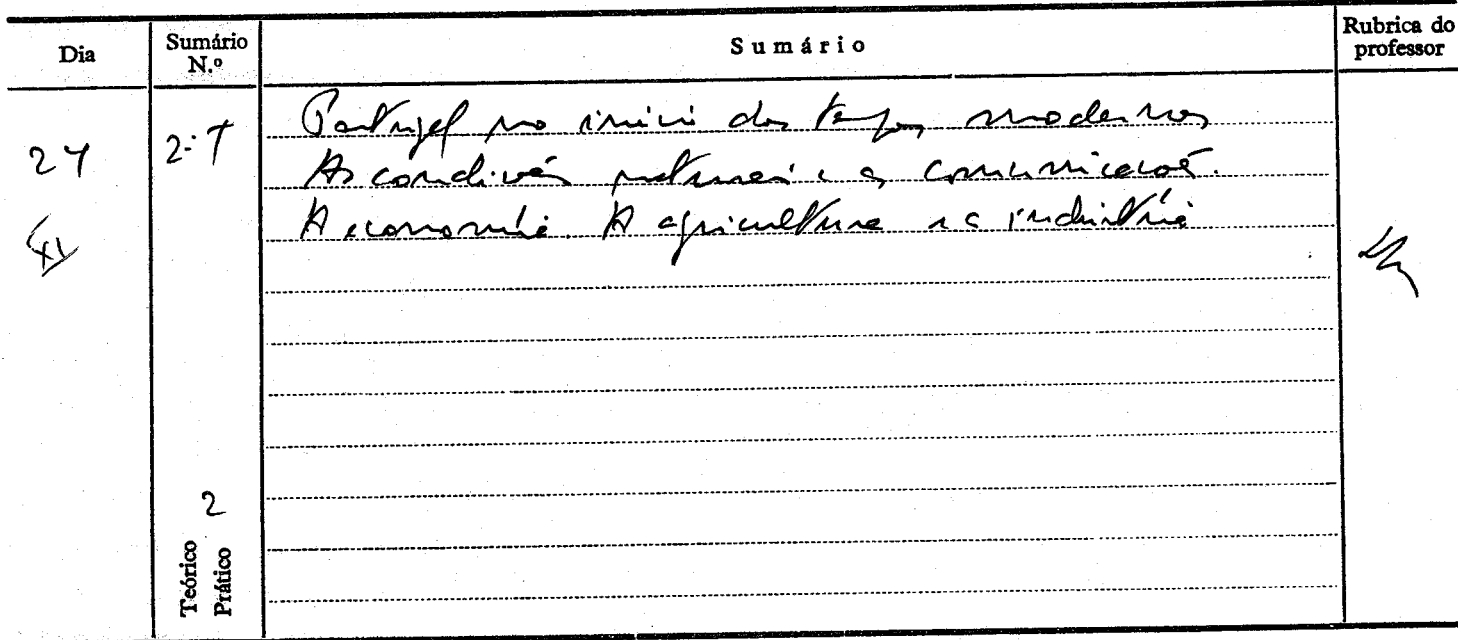 Dia
Sumário N.º
Sumário
Rubrica do professor
24
XI
2.º T
Portugal no início dos tempos modernos
As condições naturais e as comunicações.
A economia. A agricultura e a indústria
2
Teórico
Prático